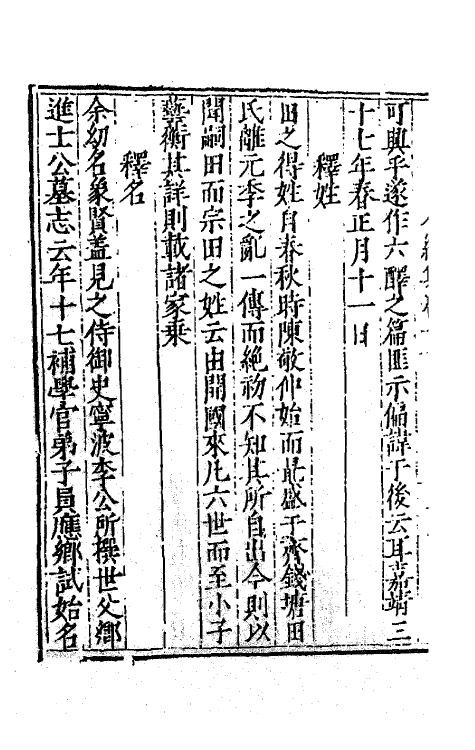 可興乎遂作六釋之篇匪示偏諱于後云耳嘉靖三
十七年春正月十一日
釋姓
田之得姓自春秋時陳敬仲始而最盛于齊錢塘田
氏離元季之亂一傳而絶初不知其所自出今則以
聞嗣田而宗田之姓云由開國來凡六世而至小子
藝衡其詳則載諸家乗
釋名
余幼名象賢蓋見之侍御史寧波李公所撰世父鄉
進士公墓志云年十七補學官弟子員應鄉試始名